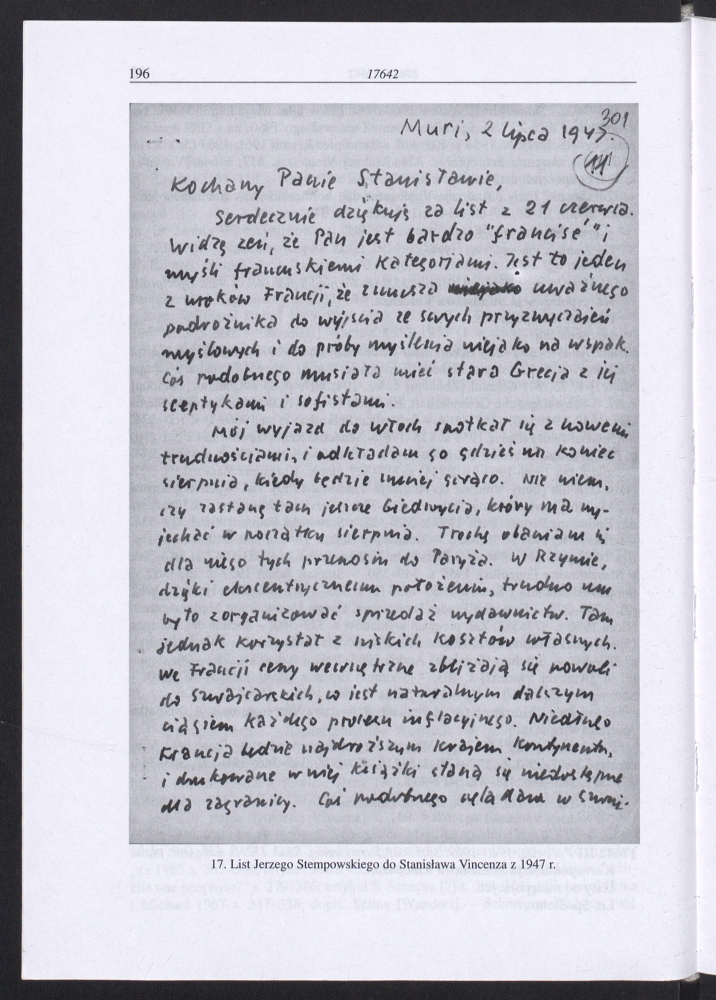 196
17642
301
Muri, 2 lipca 1947.
(14)
Kochany Panie Stanisławie,
Serdecznie dziękuję za list z 21 czerwca.
Widzę zeń, że Pan jest bardzo "francisé" i
myśli francuskiemi kategorjami. Jest to jeden
z uroków Francji, że zmusza uważnego
podróżnika do wyjścia ze swych przyzwyczajeń
myślowych i do próby myślenia niejako na wspak.
Coś podobnego musiała mieć stara Grecja z jej
sceptykami i sofistami.
Mój wyjazd do Włoch spotkał się z nowemi
trudnościami, i odkładam go gdzieś na koniec
sierpnia, kiedy będzie mniej gorąco. Nie wiem,
czy zastanę tam jeszcze Giedroycia, który ma wy-
jechać w początku sierpnia. Trochę obawiam się
dla niego tych przenosin do Paryża. W Rzymie,
dzięki ekscentrycznemu położeniu, trudno mu
było zorganizować sprzedaż wydawnictw. Tam
jednak korzystał z niskich kosztów własnych.
We Francji ceny wewnętrzne zbliżają się powoli
do szwajcarskich, co jest naturalnym dalszym
ciągiem każdego procesu inflacyjnego. Niedługo
Francja będzie najdroższym krajem kontynentu,
i drukowane w niej książki staną się niedostępne
dla zagranicy. Coś podobnego oglądam w Szwaj-
17. List Jerzego Stempowskiego do Stanisława Vincenza z 1947 r.